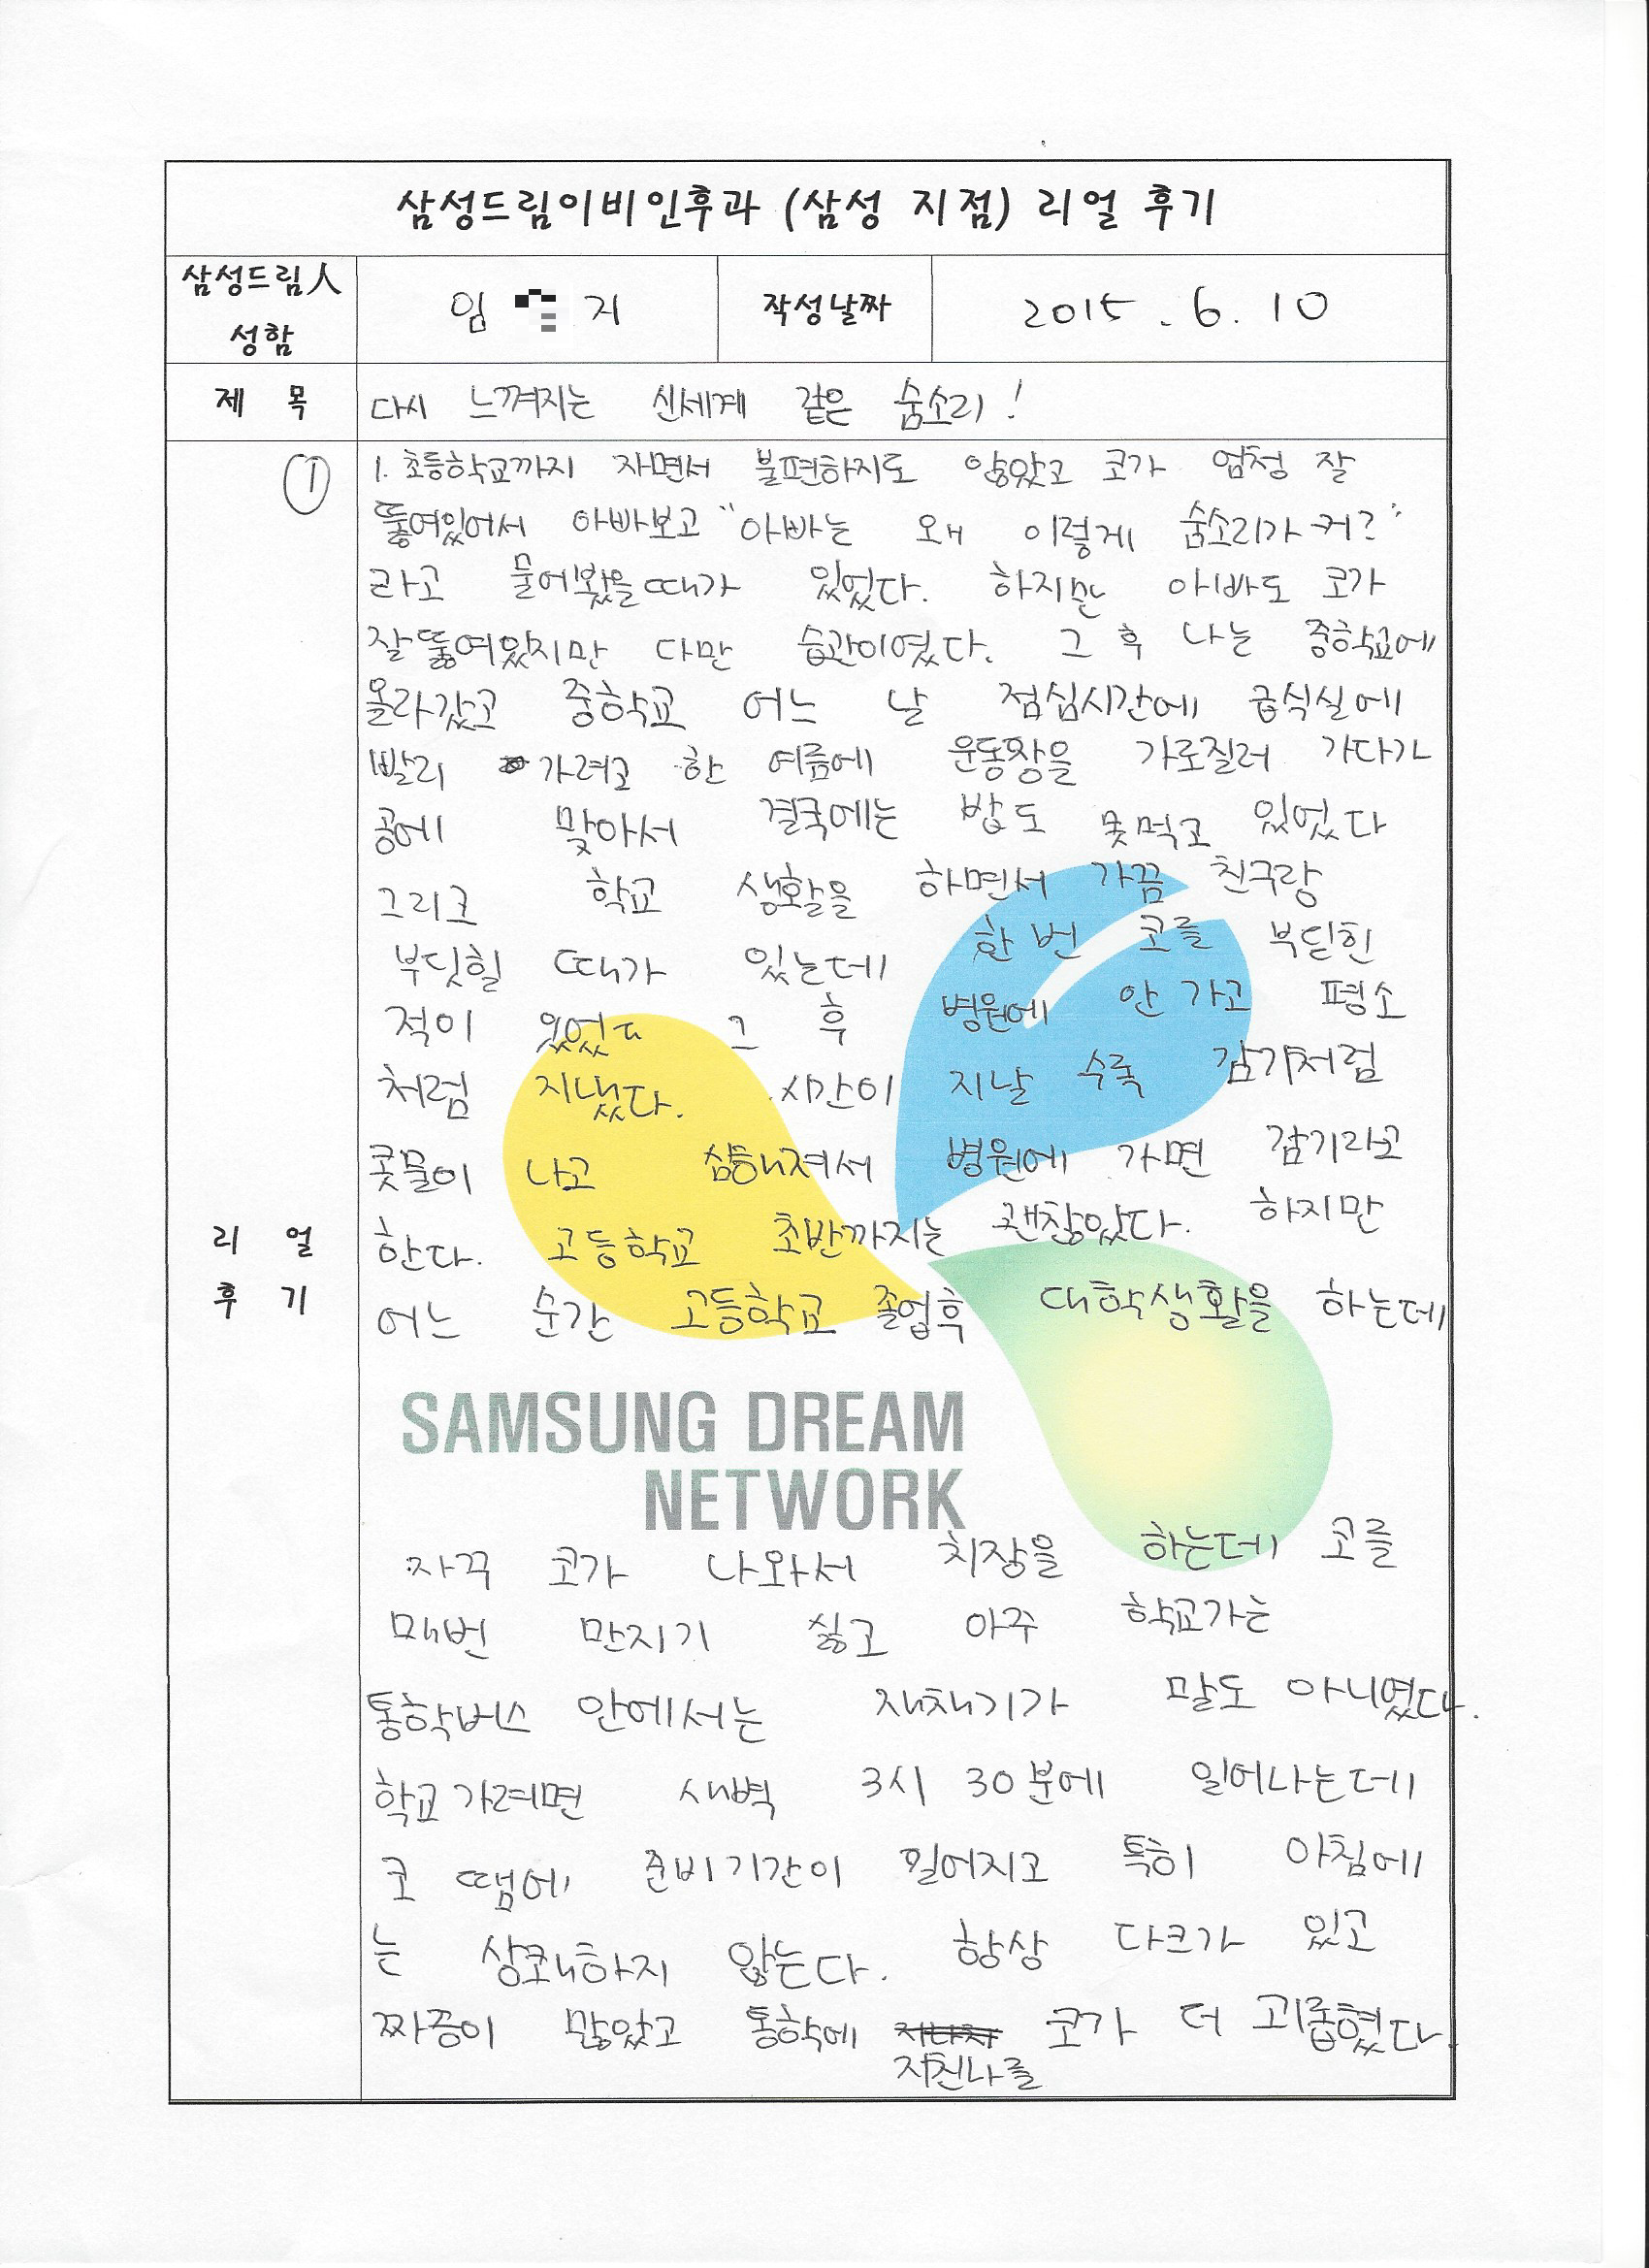 삼성드림이비인후과 (삼성 지점) 리얼 후기
삼성드림人
성함
임 지
작성날짜
2015. 6. 10
제 목
다시 느껴지는 신세계 같은 숨소리!
①
1. 초등학교까지 자면서 불편하지도 않았고 코가 엄청 잘
뚫여있어서 아빠보고 "아빠는 왜 이렇게 숨소리가 커?"
라고 물어봤을때가 있었다. 하지만 아빠도 코가
잘뚫여있지만 다만 습관이였다. 그 후 나는 중학교에
올라갔고 중학교 어느 날 점심시간에 급식실에
빨리 가려고 한 여름에 운동장을 가로질러 가다가
공에 맞아서 결국에는 밥도 못먹고 있었다
그리고 학교 생활을 하면서 가끔 친구랑
부딧힐 때가 있는데 한 번 코를 부딛힌
적이 있었다 그 후 병원에 안 가고 평소
처럼 지냈다. 시간이 지날 수록 감기처럼
콧물이 나고 병원에 가면 감기라고
한다. 고등학교 초반까지는 괜찮았다. 하지만
어느 순간 고등학교 졸업후 대학생활을 하는데
SAMSUNG DREAM
NETWORK
자꾸 코가 나와서 치장을 하는데 코를
매번 만지기 싫고 아주 학교가는
통학버스 안에서는 재채기가 말도 아니였다.
학교가려면 새벽 3시 30분에 일어나는데
코 땜에 준비기간이 길어지고 특히 아침에
는 상쾌하지 않는다. 항상 다크가 있고
짜증이 많았고 통학에 코가 더 괴롭혔다.
지친나를
리 얼
후 기